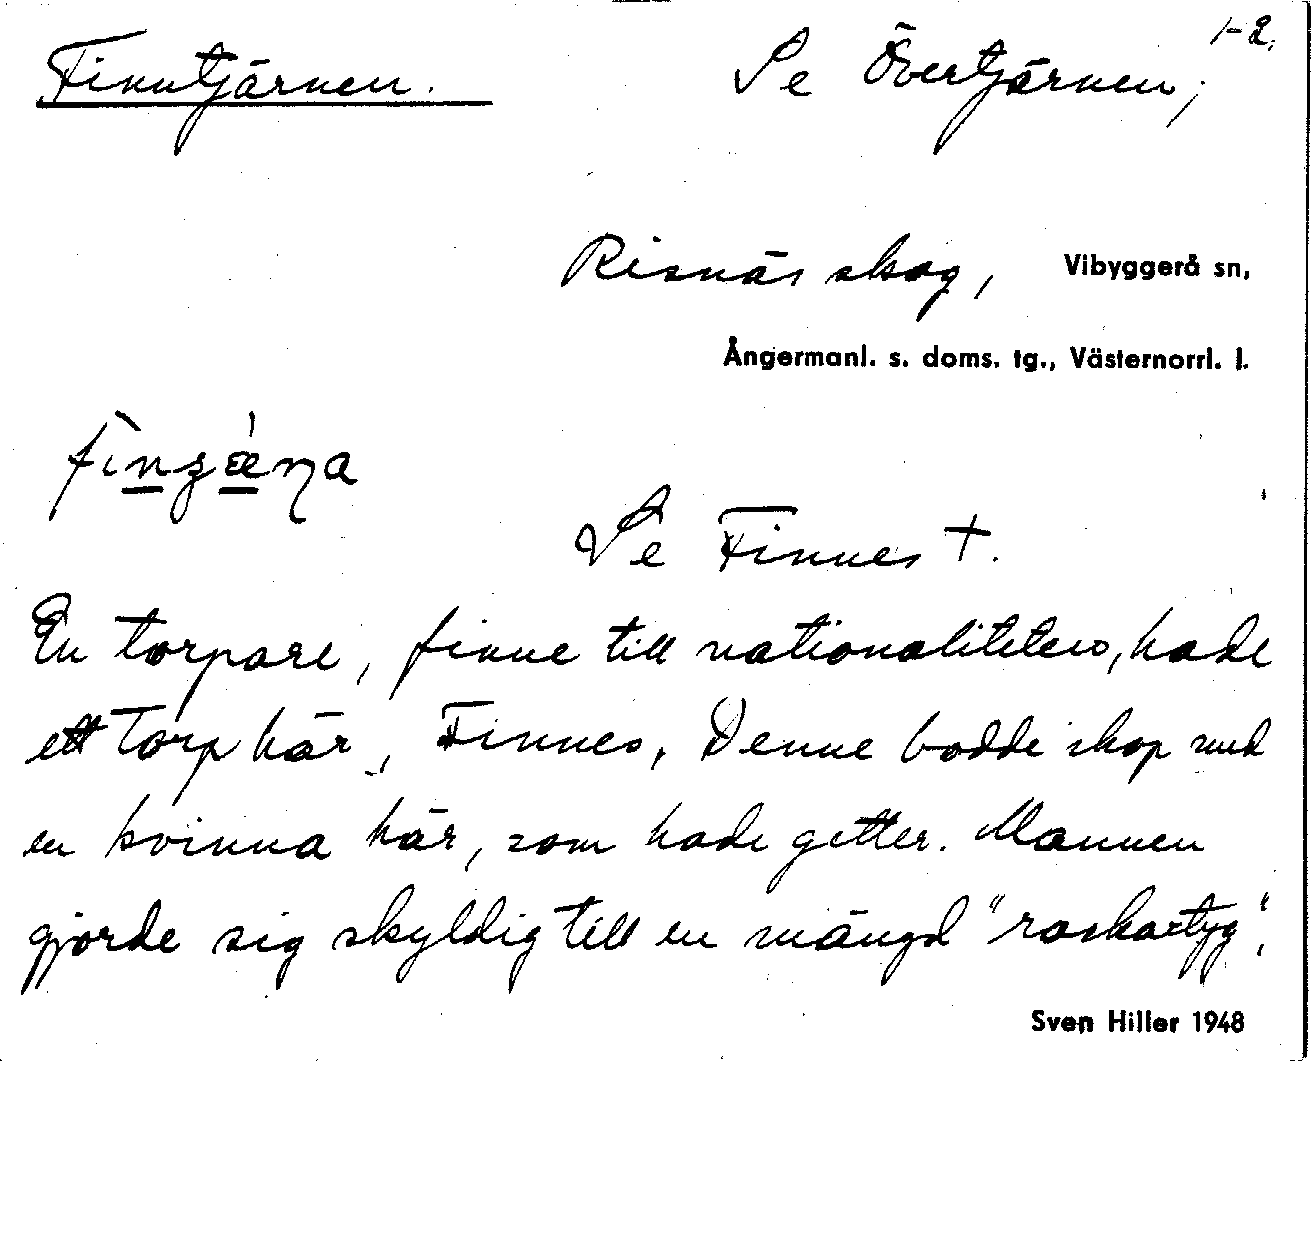 Finntjärnen. Se Övertjärnen; 1-2,
Risnäs skog, Vibyggerå sn,
Ångermanl. s. doms. tg., Västernorrl. l.
Se Finnes +.
En torpare, finne till nationaliteten, hade
ett torp här, Finnes, Denne bodde ihop med
en kvinna här, som hade getter. Mannen
gjorde sig skyldig till en mängd "roskartyg".
Sven Hiller 1948